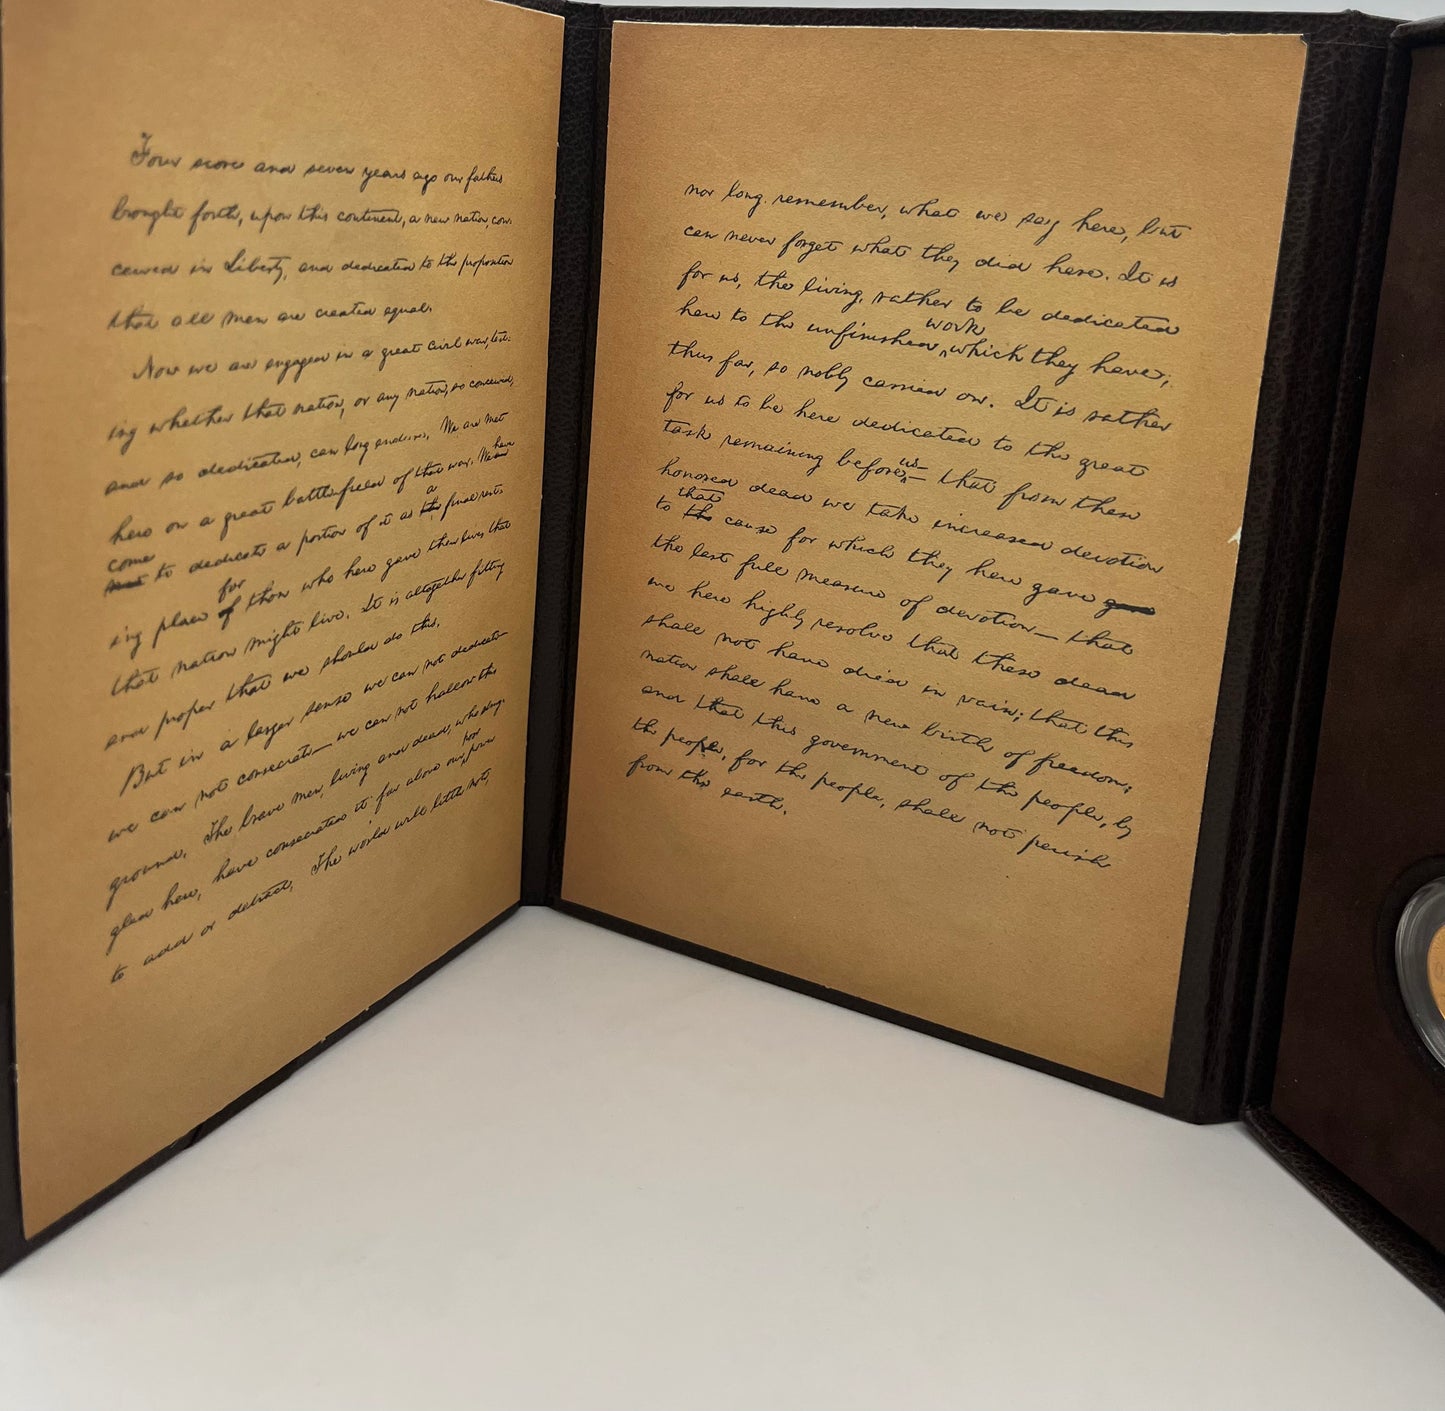 Four score and seven years ago our fathers
brought forth, upon this continent, a new nation, con-
ceived in Liberty, and dedicated to the proposition
that all men are created equal.
Now we are engaged in a great civil war, test-
ing whether that nation, or any nation, so conceived,
and so dedicated, can long endure. We are met
here on a great battle-field of that war. We have
come to dedicate a portion of it as a final rest-
ing place for those who here gave their lives that
that nation might live. It is altogether fitting
and proper that we should do this.
But in a larger sense we can not dedicate—
we can not consecrate—we can not hallow this
ground. The brave men, living and dead, who strug-
gled here, have consecrated it far above our poor power
to add or detract. The world will little note,
nor long remember, what we say here, but
can never forget what they did here. It is
for us, the living, rather to be dedicated
here to the unfinished work which they have,
thus far, so nobly carried on. It is rather
for us to be here dedicated to the great
task remaining before us— that from these
honored dead we take increased devotion
to that cause for which they here gave
the last full measure of devotion— that
we here highly resolve that these dead
shall not have died in vain; that this
nation shall have a new birth of freedom;
and that this government of the people, by
the people, for the people, shall not perish
from the earth.